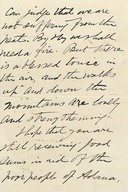 Can judge that we are
not suffering from the
heat. By the we shall
need a fire. But there
is a blessed tonic in
the air, and the walks
up and down the
mountains are lovely
and strengthening.
I hope that you are
still receiving good
sums in aid of the
poor people of Adana,